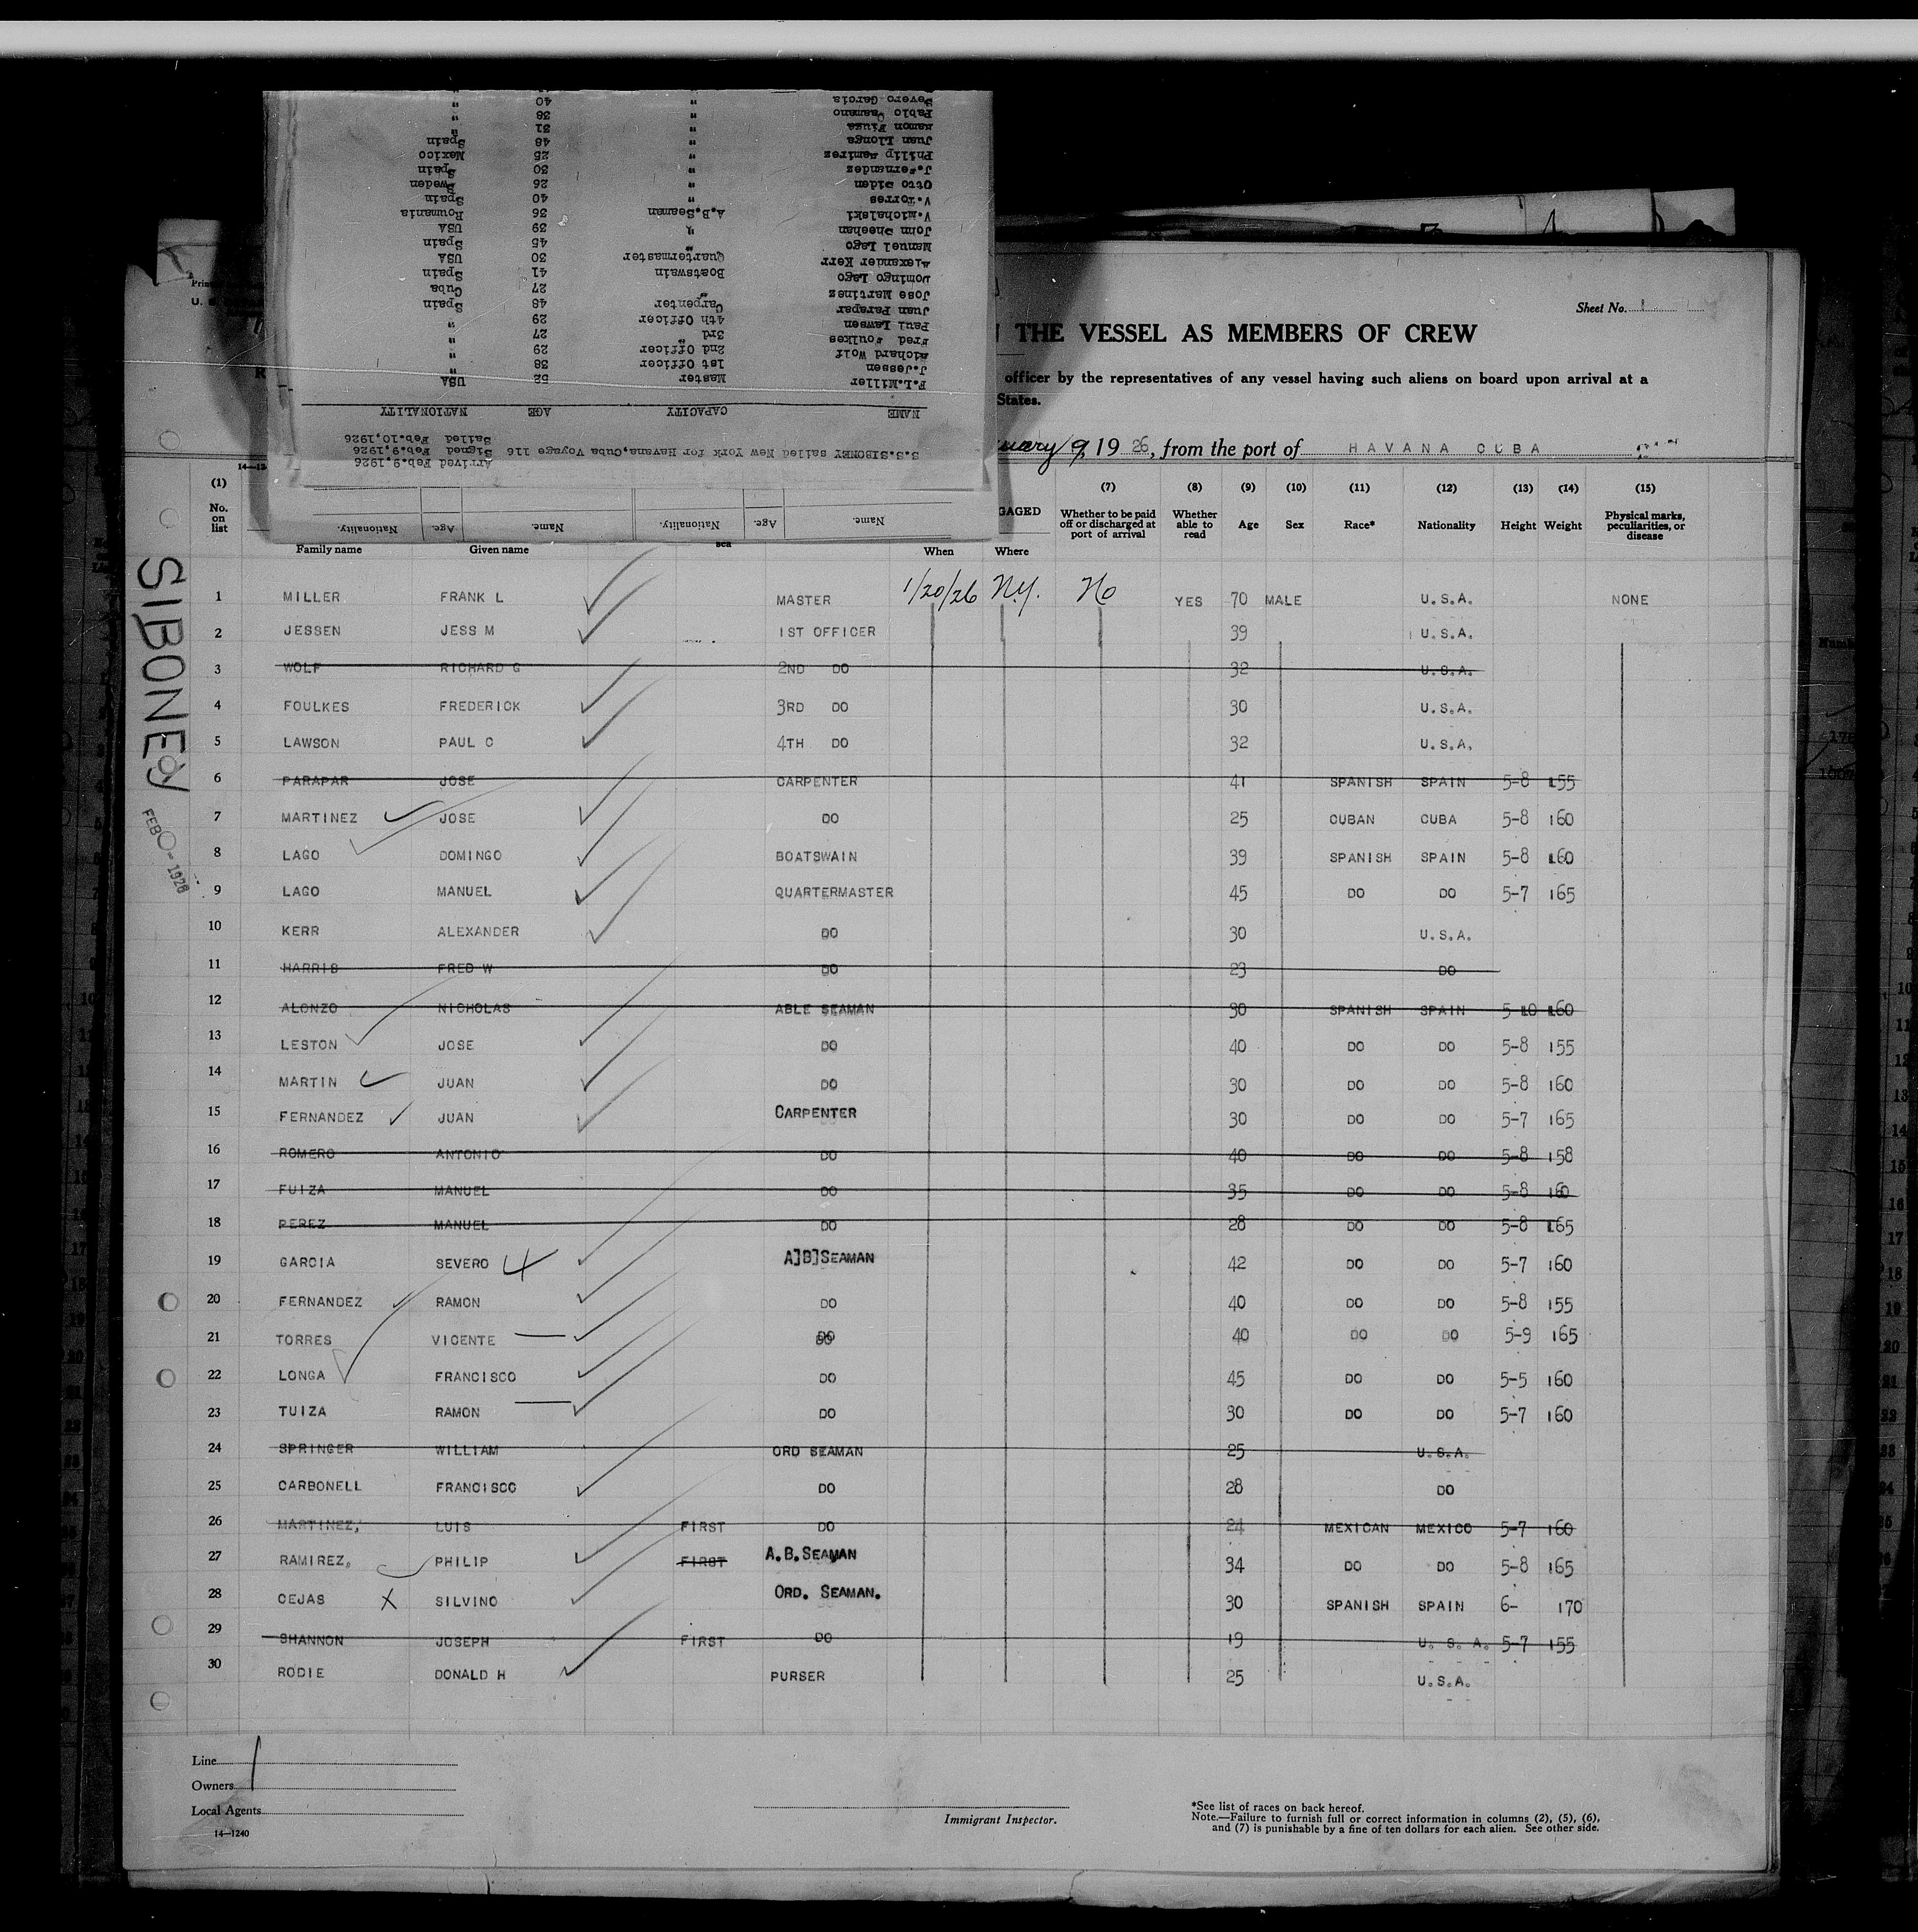 Severo Garcia " 40 "
Pablo 38 "
Ramon Fiuza " 31 "
Juan Llonga " 48 Spain
Philip Ramirez " 25 Mexico
J.Fernandez " 30 Spain
Otto Siden " 26 Sweden
V.Torres " 40 Spain
V.Michalski A.B.Seaman 36 Roumania
John Sheehan " 39 USA
Manuel Lago " 45 Spain
Alexander Kerr Quartermaster 30 USA
Domingo Lago Boatswain 41 Spain
Jose Martinez " 27 Cuba
Juan Parapar Carpenter 48 Spain
Paul Lawsen 4th Officer 29 "
Fred Foulkes 3rd " 27 "
Richard Wolf 2nd Officer 29 "
J.Jessen 1st Officer 38 "
F.L.Miller Master 52 USA
NAME CAPACITY AGE NATIONALITY
S.S.SIBONEY sailed New York for Havana,Cuba Voyage 116
Arrived Feb.9.1926
Signed Feb.9,1926
Sailed Feb.10,1926
Name. Age. Nationality. Name. Age. Nationality.
Sheet No. 1
THE VESSEL AS MEMBERS OF CREW
officer by the representatives of any vessel having such aliens on board upon arrival at a
States.
uary 9, 19 26, from the port of HAVANA CUBA
(1) (7) (8) (9) (10) (11) (12) (13) (14) (15)
No. on list Family name Given name sea GAGED When Where Whether to be paid off or discharged at port of arrival Whether able to read Age Sex Race* Nationality Height Weight Physical marks, peculiarities, or disease
SIBONEY
FEB 1926
1 MILLER FRANK L MASTER 1/20/26 N.Y. No YES 70 MALE U.S.A. NONE
2 JESSEN JESS M 1ST OFFICER 39 U.S.A.
3 WOLF RICHARD G 2ND DO 32 U.S.A.
4 FOULKES FREDERICK 3RD DO 30 U.S.A.
5 LAWSON PAUL C 4TH DO 32 U.S.A.
6 PARAPAR JOSE CARPENTER 41 SPANISH SPAIN 5-8 155
7 MARTINEZ JOSE DO 25 CUBAN CUBA 5-8 160
8 LAGO DOMINGO BOATSWAIN 39 SPANISH SPAIN 5-8 160
9 LAGO MANUEL QUARTERMASTER 45 DO DO 5-7 165
10 KERR ALEXANDER DO 30 U.S.A.
11 HARRIS FRED W DO 23 DO
12 ALONZO NICHOLAS ABLE SEAMAN 30 SPANISH SPAIN 5-10 160
13 LESTON JOSE DO 40 DO DO 5-8 155
14 MARTIN JUAN DO 30 DO DO 5-8 160
15 FERNANDEZ JUAN CARPENTER 30 DO DO 5-7 165
16 ROMERO ANTONIO DO 40 DO DO 5-8 158
17 FUIZA MANUEL DO 35 DO DO 5-8 160
18 PEREZ MANUEL DO 28 DO DO 5-8 165
19 GARCIA SEVERO A]B]SEAMAN 42 DO DO 5-7 160
20 FERNANDEZ RAMON DO 40 DO DO 5-8 155
21 TORRES VICENTE DO 40 DO DO 5-9 165
22 LONGA FRANCISCO DO 45 DO DO 5-5 160
23 TUIZA RAMON DO 30 DO DO 5-7 160
24 SPRINGER WILLIAM ORD SEAMAN 25 U.S.A.
25 CARBONELL FRANCISCO DO 28 DO
26 MARTINEZ, LUIS FIRST DO 24 MEXICAN MEXICO 5-7 160
27 RAMIREZ. PHILIP FIRST A.B.SEAMAN 34 DO DO 5-8 165
28 CEJAS SILVINO ORD. SEAMAN. 30 SPANISH SPAIN 6- 170
29 SHANNON JOSEPH FIRST DO 19 U. S. A. 5-7 155
30 RODIE DONALD H PURSER 25 U.S.A.
Line
Owners
Local Agents
14—1240
Immigrant Inspector.
*See list of races on back hereof.
Note.—Failure to furnish full or correct information in columns (2), (5), (6),
and (7) is punishable by a fine of ten dollars for each alien. See other side.